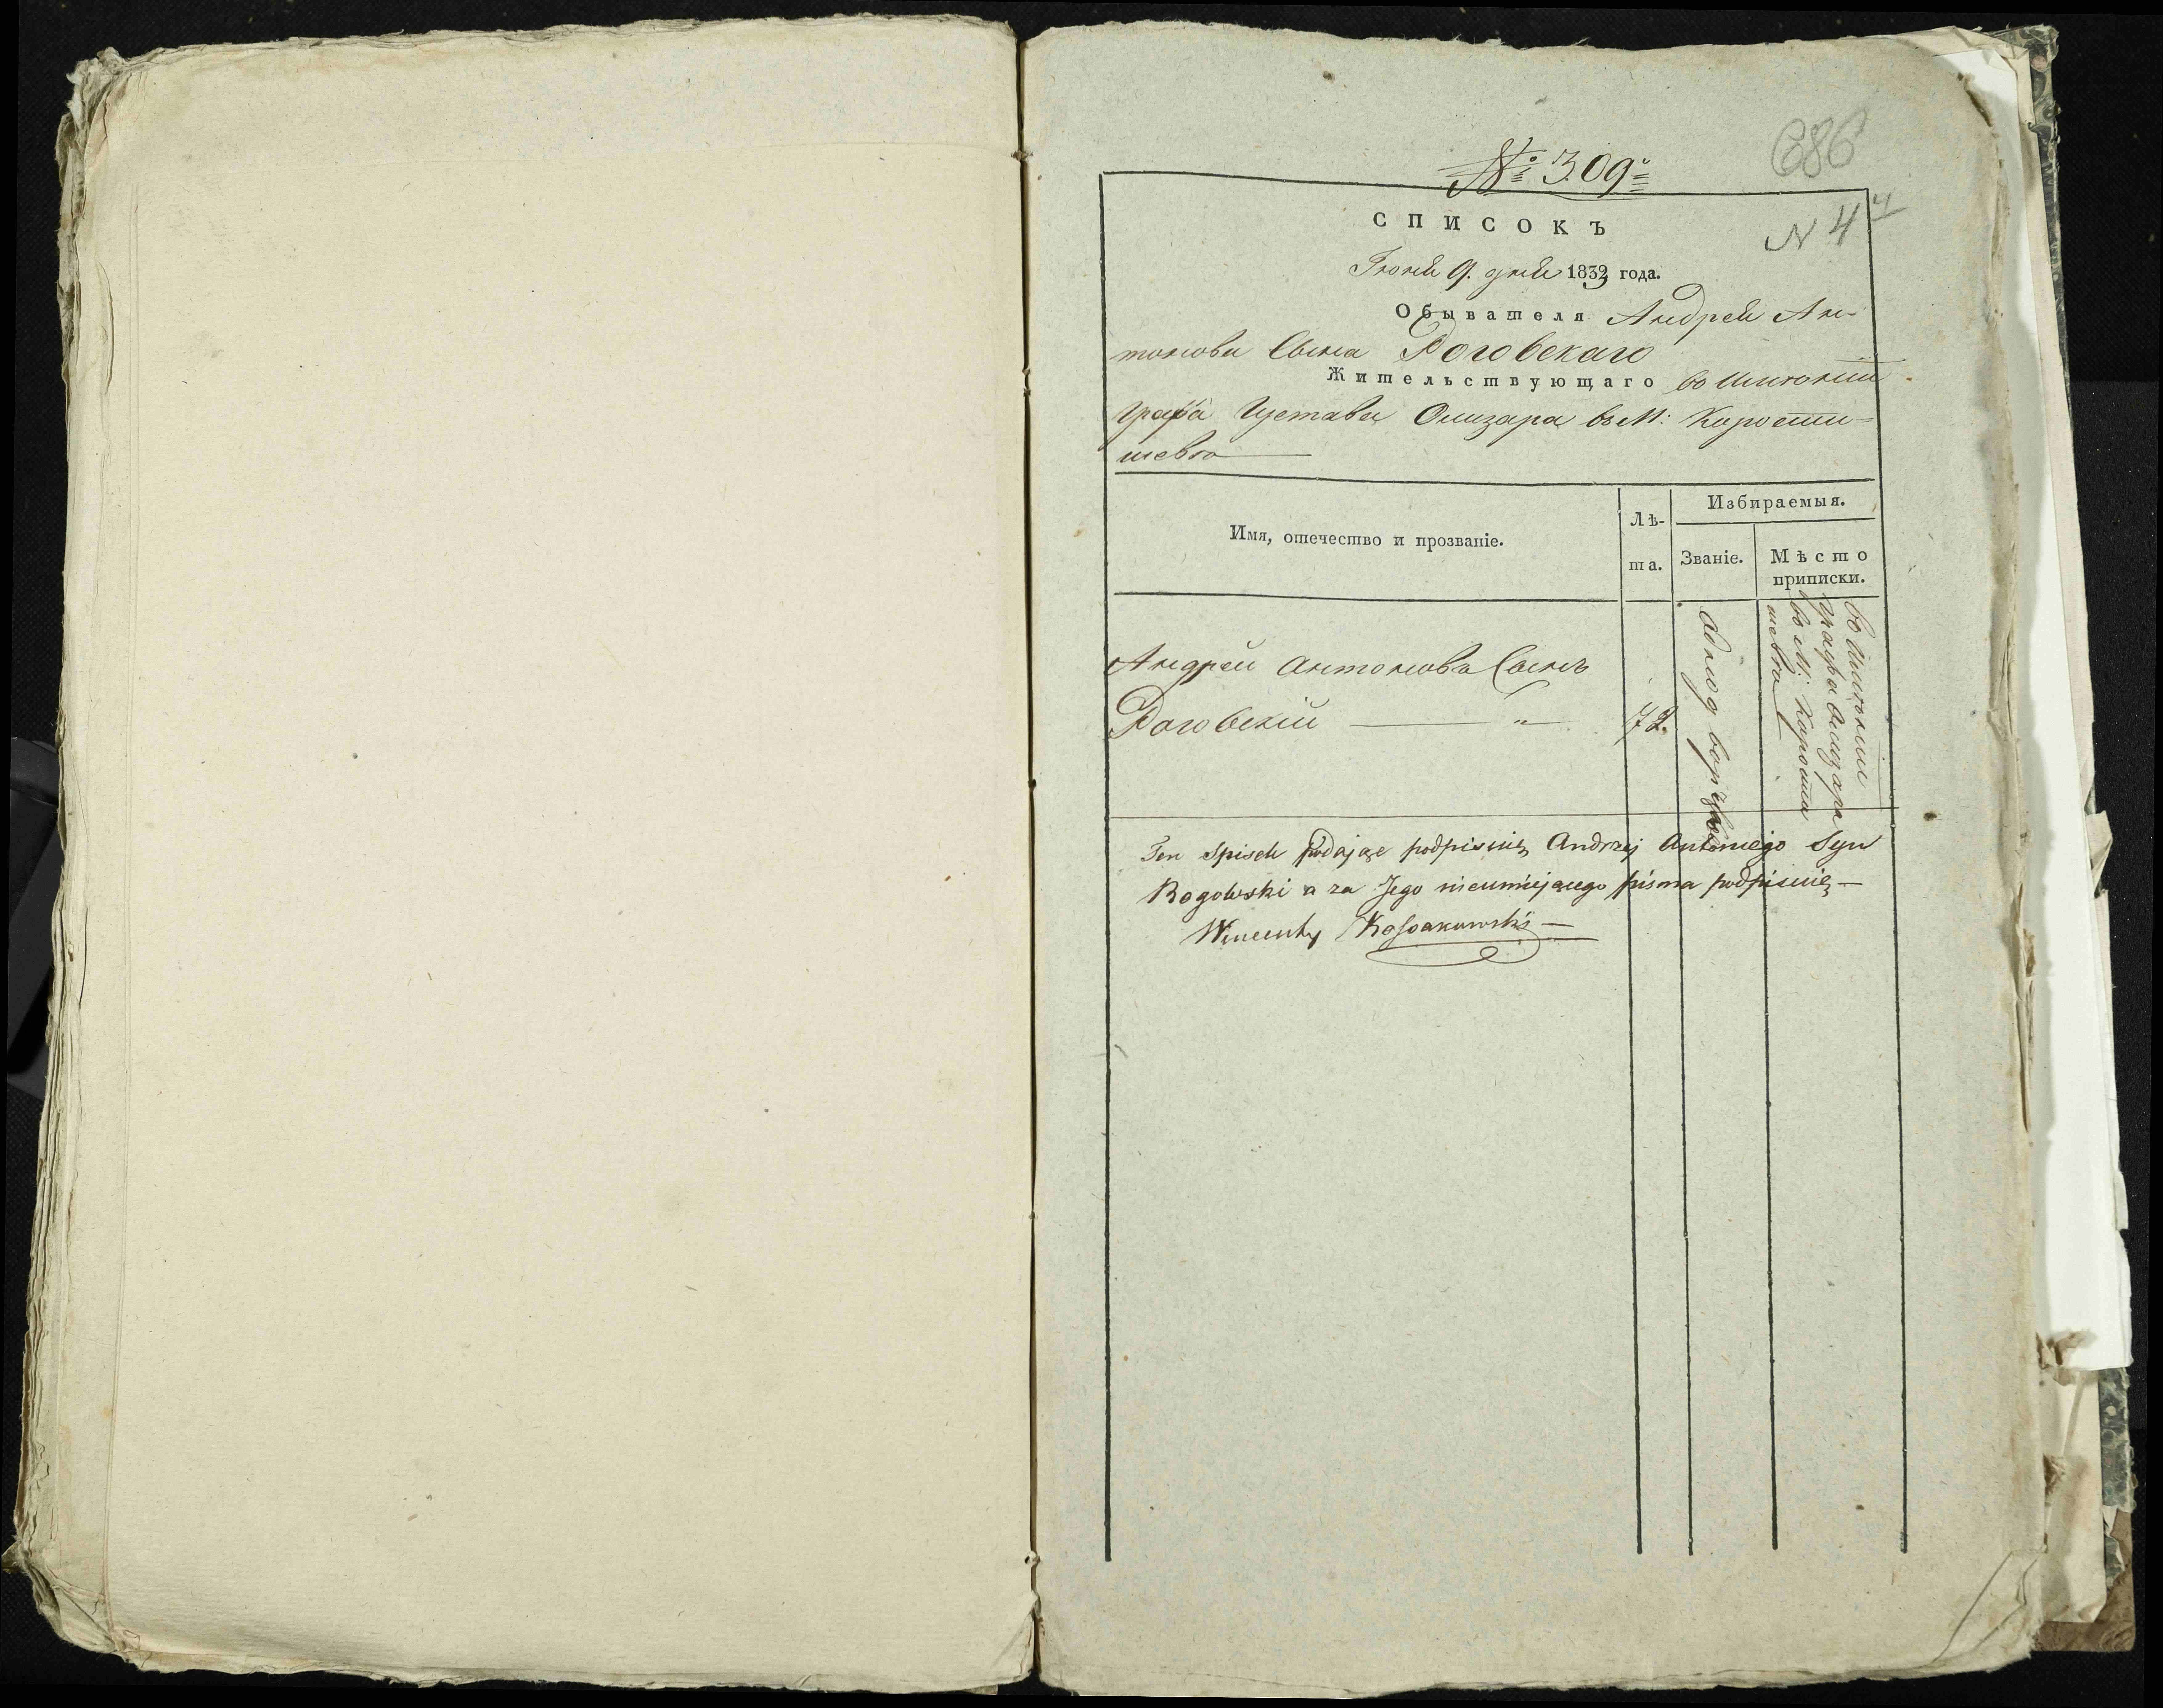 686
№ 309й
N 44
СПИСОКЪ
Іюня 9. дня 1833 года.
Обывателя Андрея Ан-
тонова Сына Роговскаго
Жительствующаго во имѣніи
Графа Густава Олизара въ М: Корости-
шевѣ
Имя, отечество и прозваніе.
Лѣ-
та.
Избираемыя.
Званіе.
Мѣсто
приписки.
Андрей Антоновъ Сынъ
Роговскій
72.
однодворческое
во имѣніи
Графа Олизара
въ М: Корости
шевѣ
Ten Spisek Podając podpisuię Andrzej Antoniego Syn
Rogowski a za Jego nieumiejącego pisma podpisuię
Wincenty Kossakowski